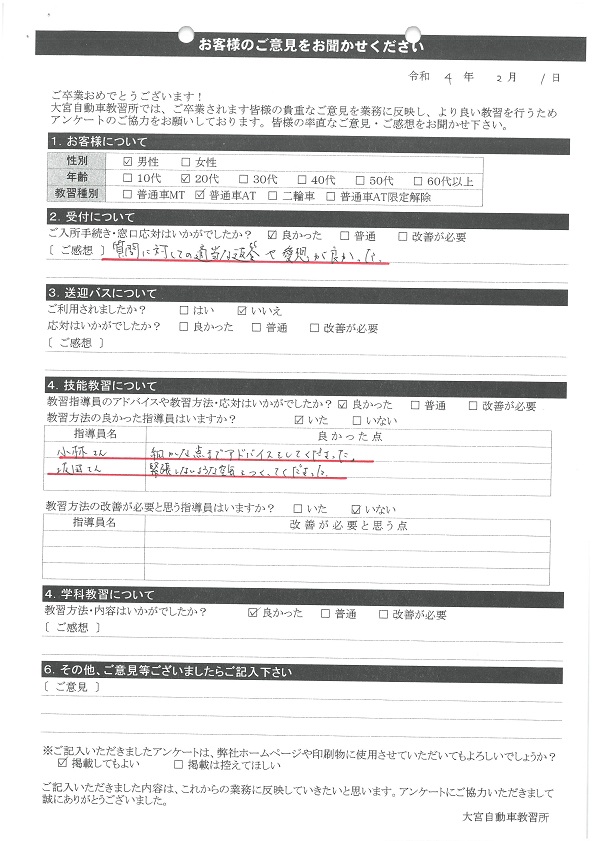 お客様のご意見をお聞かせください
令和 4 年 2月 1日
ご卒業おめでとうございます！
大宮自動車教習所では、ご卒業されます皆様の貴重なご意見を業務に反映し、より良い教習を行うため
アンケートのご協力をお願いしております。皆様の率直なご意見・ご感想をお聞かせ下さい。
1. お客様について
性別 ☑ 男性 □ 女性
年齢 □ 10代 ☑ 20代 □ 30代 □ 40代 □ 50代 □ 60代以上
教習種別 □ 普通車MT ☑ 普通車AT □ 二輪車 □ 普通車AT限定解除
2. 受付について
ご入所手続き・窓口応対はいかがでしたか？ ☑ 良かった □ 普通 □ 改善が必要
［ ご感想 ］ 質問に対しての適当な返答や愛想が良かった。
3. 送迎バスについて
ご利用されましたか？ □ はい ☑ いいえ
応対はいかがでしたか？ □ 良かった □ 普通 □ 改善が必要
［ ご感想 ］
4. 技能教習について
教習指導員のアドバイスや教習方法・応対はいかがでしたか？ ☑ 良かった □ 普通 □ 改善が必要
教習方法の良かった指導員はいますか？ ☑ いた □ いない
指導員名 良かった点
小林さん 細かな点までアドバイスをしてくださった。
さん 緊張しないような空気をつくってくださった。
教習方法の改善が必要と思う指導員はいますか？ □ いた ☑ いない
指導員名 改善が必要と思う点
4. 学科教習について
教習方法・内容はいかがでしたか？ ☑ 良かった □ 普通 □ 改善が必要
［ ご感想 ］
6. その他、ご意見等ございましたらご記入下さい
［ ご意見 ］
※ご記入いただきましたアンケートは、弊社ホームページや印刷物に使用させていただいてもよろしいでしょうか？
☑ 掲載してもよい □ 掲載は控えてほしい
ご記入いただきました内容は、これからの業務に反映していきたいと思います。アンケートにご協力いただきまして
誠にありがとうございました。
大宮自動車教習所